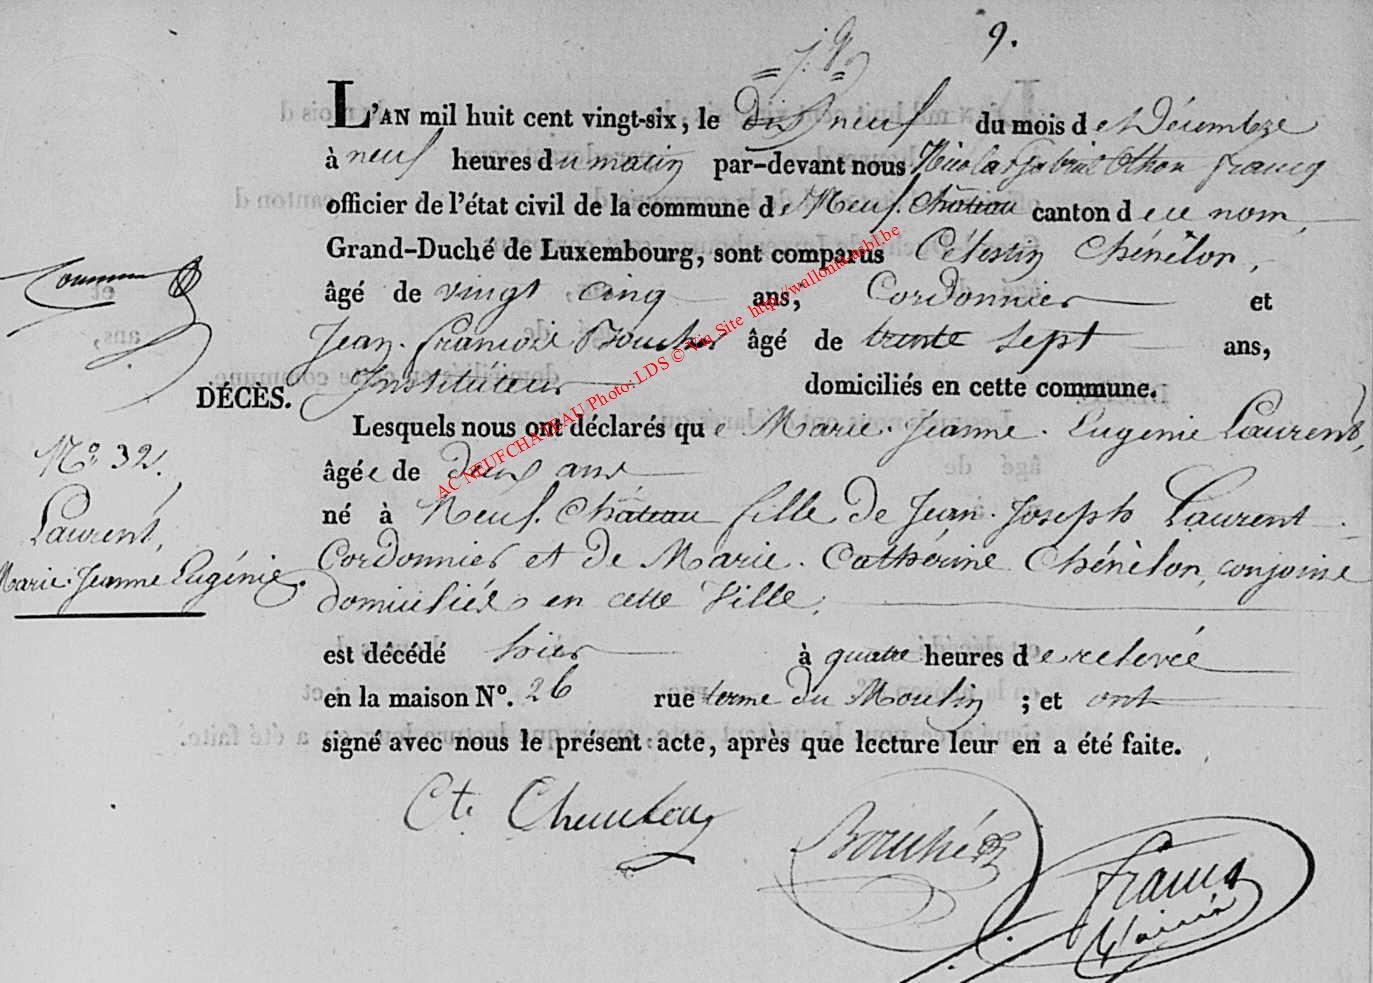 9.
L'AN mil huit cent vingt-six, le dix neuf du mois de Décembre
à neuf heures du matin par-devant nous Nicolas Gabriel Othon Francq
officier de l'état civil de la commune de Neuf-Château canton de ce nom,
Grand-Duché de Luxembourg, sont comparus Célestin Chénêlon,
âgé de vingt cinq ans, Cordonnier et
Jean-François Bouché âgé de trente sept ans,
Instituteur domiciliés en cette commune.
DÉCÈS.
Lesquels nous ont déclarés que Marie-Jeanne-Eugénie Laurent,
âgée de deux ans
né à Neuf-Château fille de Jean-Joseph Laurent
Cordonnier et de Marie-Cathérine Chénêlon, conjoins
domiciliés en cette Ville,
est décédé hier à quatre heures de relevée
en la maison No. 26 rue terme du Moulin ; et ont
signé avec nous le présent acte, après que lecture leur en a été faite.
No 32.
Laurent,
Marie-Jeanne Eugénie.
Ct. Chenelon
Bouché
Francq
AC NEUFCHATEAU Photo: LDS © Van Site http://wallonia.asbl.be